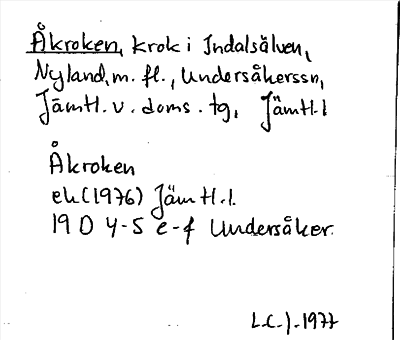 Åkroken, krok i Indalsälven,
Nyland, m. fl., Undersåkerssn,
Jämtl. v. doms. tg, Jämtl. l
Åkroken
ek (1976) Jämtl. l.
19 D 4-5 e-f Undersåker.
L.C.J. 1977